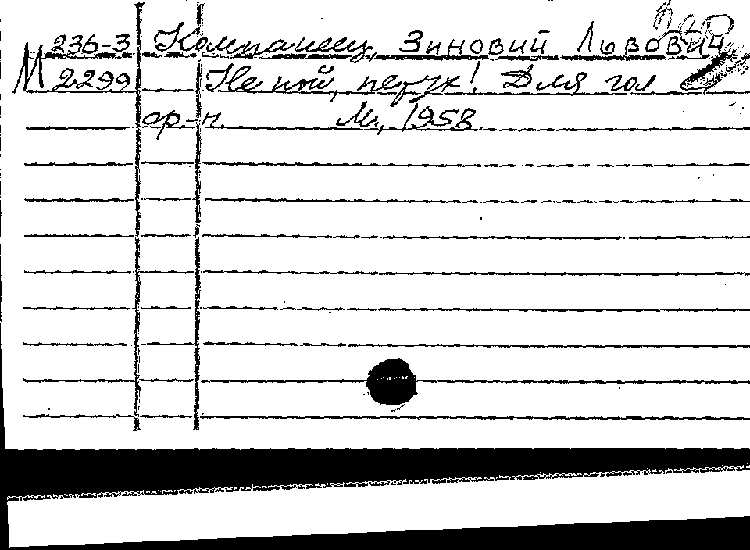 236-3 Компанеец, Зиновий Львович
М 2299 Не пой, петух! Для гол
ф-п. М., 1958